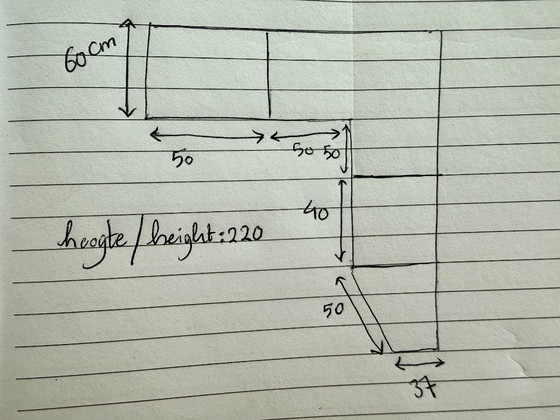 60 cm
50
50 50
40
hoogte / height: 220
50
37